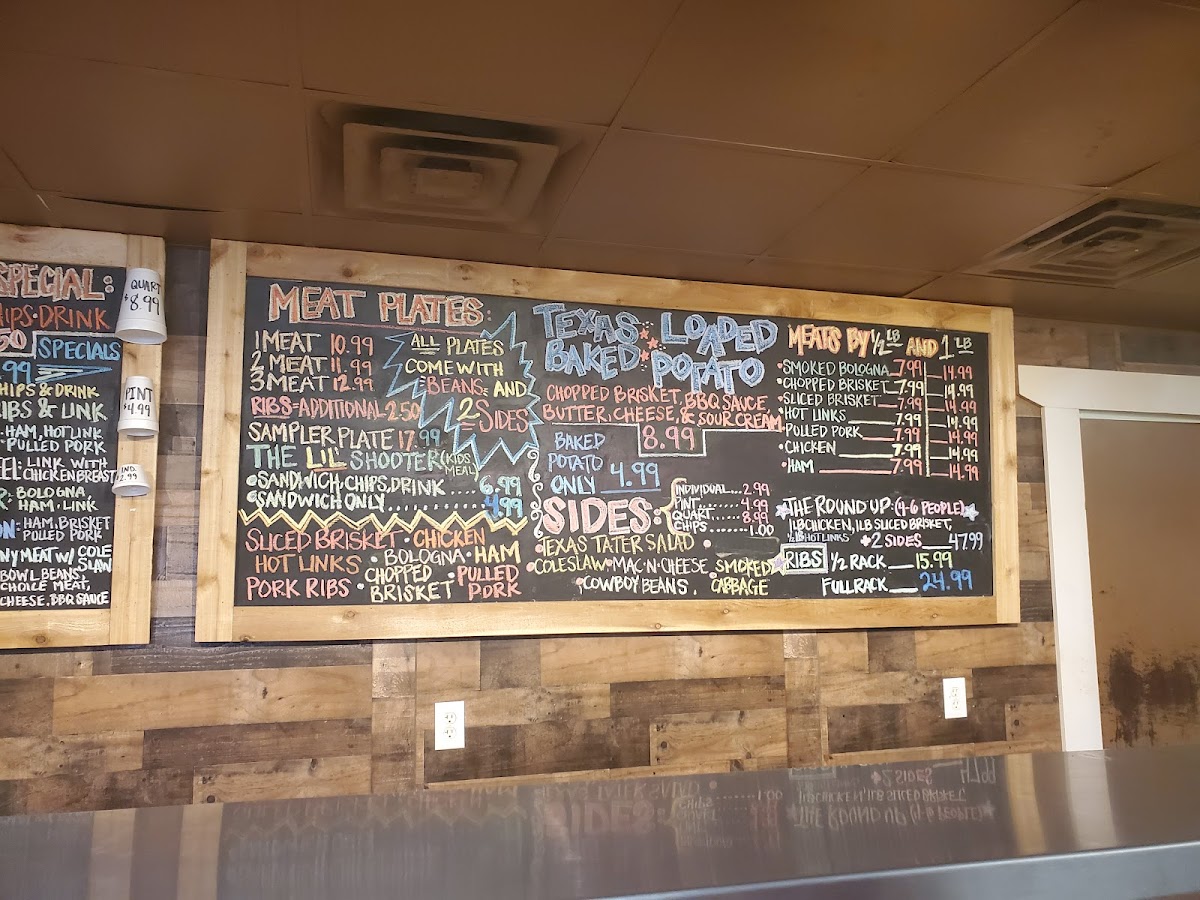 SPECIAL:
DRINK
50 SPECIALS
99
CHIPS & DRINK
RIBS & LINK
HAM, HOT LINK
PULLED PORK
LINK WITH
CHICKEN BREAST
BOLOGNA,
HAM, LINK
HAM, BRISKET
PULLED PORK
ANY MEAT W/ COLE SLAW
BOWL BEANS,
CHOICE MEAT,
CHEESE, BBQ SAUCE
QUART
$8.99
PINT
$4.99
IND.
2.99
MEAT PLATES:
1 MEAT 10.99
2 MEAT 11.99
3 MEAT 12.99
RIBS=ADDITIONAL 2.50
ALL PLATES
COME WITH
BEANS AND
2 SIDES
SAMPLER PLATE 17.99
THE LIL' SHOOTER (KIDS MEAL)
•SANDWICH, CHIPS, DRINK .... 6.99
•SANDWICH ONLY ............ 4.99
SLICED BRISKET • CHICKEN
HOT LINKS • BOLOGNA • HAM
PORK RIBS • CHOPPED BRISKET • PULLED PORK
TEXAS LOADED
BAKED POTATO
CHOPPED BRISKET, BBQ SAUCE
BUTTER, CHEESE, & SOUR CREAM
8.99
BAKED
POTATO
ONLY 4.99
SIDES:
INDIVIDUAL... 2.99
PINT......... 4.99
QUART........ 8.99
CHIPS........ 1.00
•TEXAS TATER SALAD •
•COLESLAW •MAC-N-CHEESE
•COWBOY BEANS •
SMOKED
CABBAGE
MEATS BY 1/2 LB AND 1 LB
•SMOKED BOLOGNA 7.99 14.99
•CHOPPED BRISKET 7.99 14.99
•SLICED BRISKET 7.99 14.99
•HOT LINKS 7.99 14.99
•PULLED PORK 7.99 14.99
•CHICKEN 7.99 14.99
•HAM 7.99 14.99
THE ROUND UP: (4-6 PEOPLE)
1LB CHICKEN, 1LB SLICED BRISKET,
1/2 LB HOT LINKS +2 SIDES 47.99
RIBS 1/2 RACK 15.99
FULL RACK 24.99